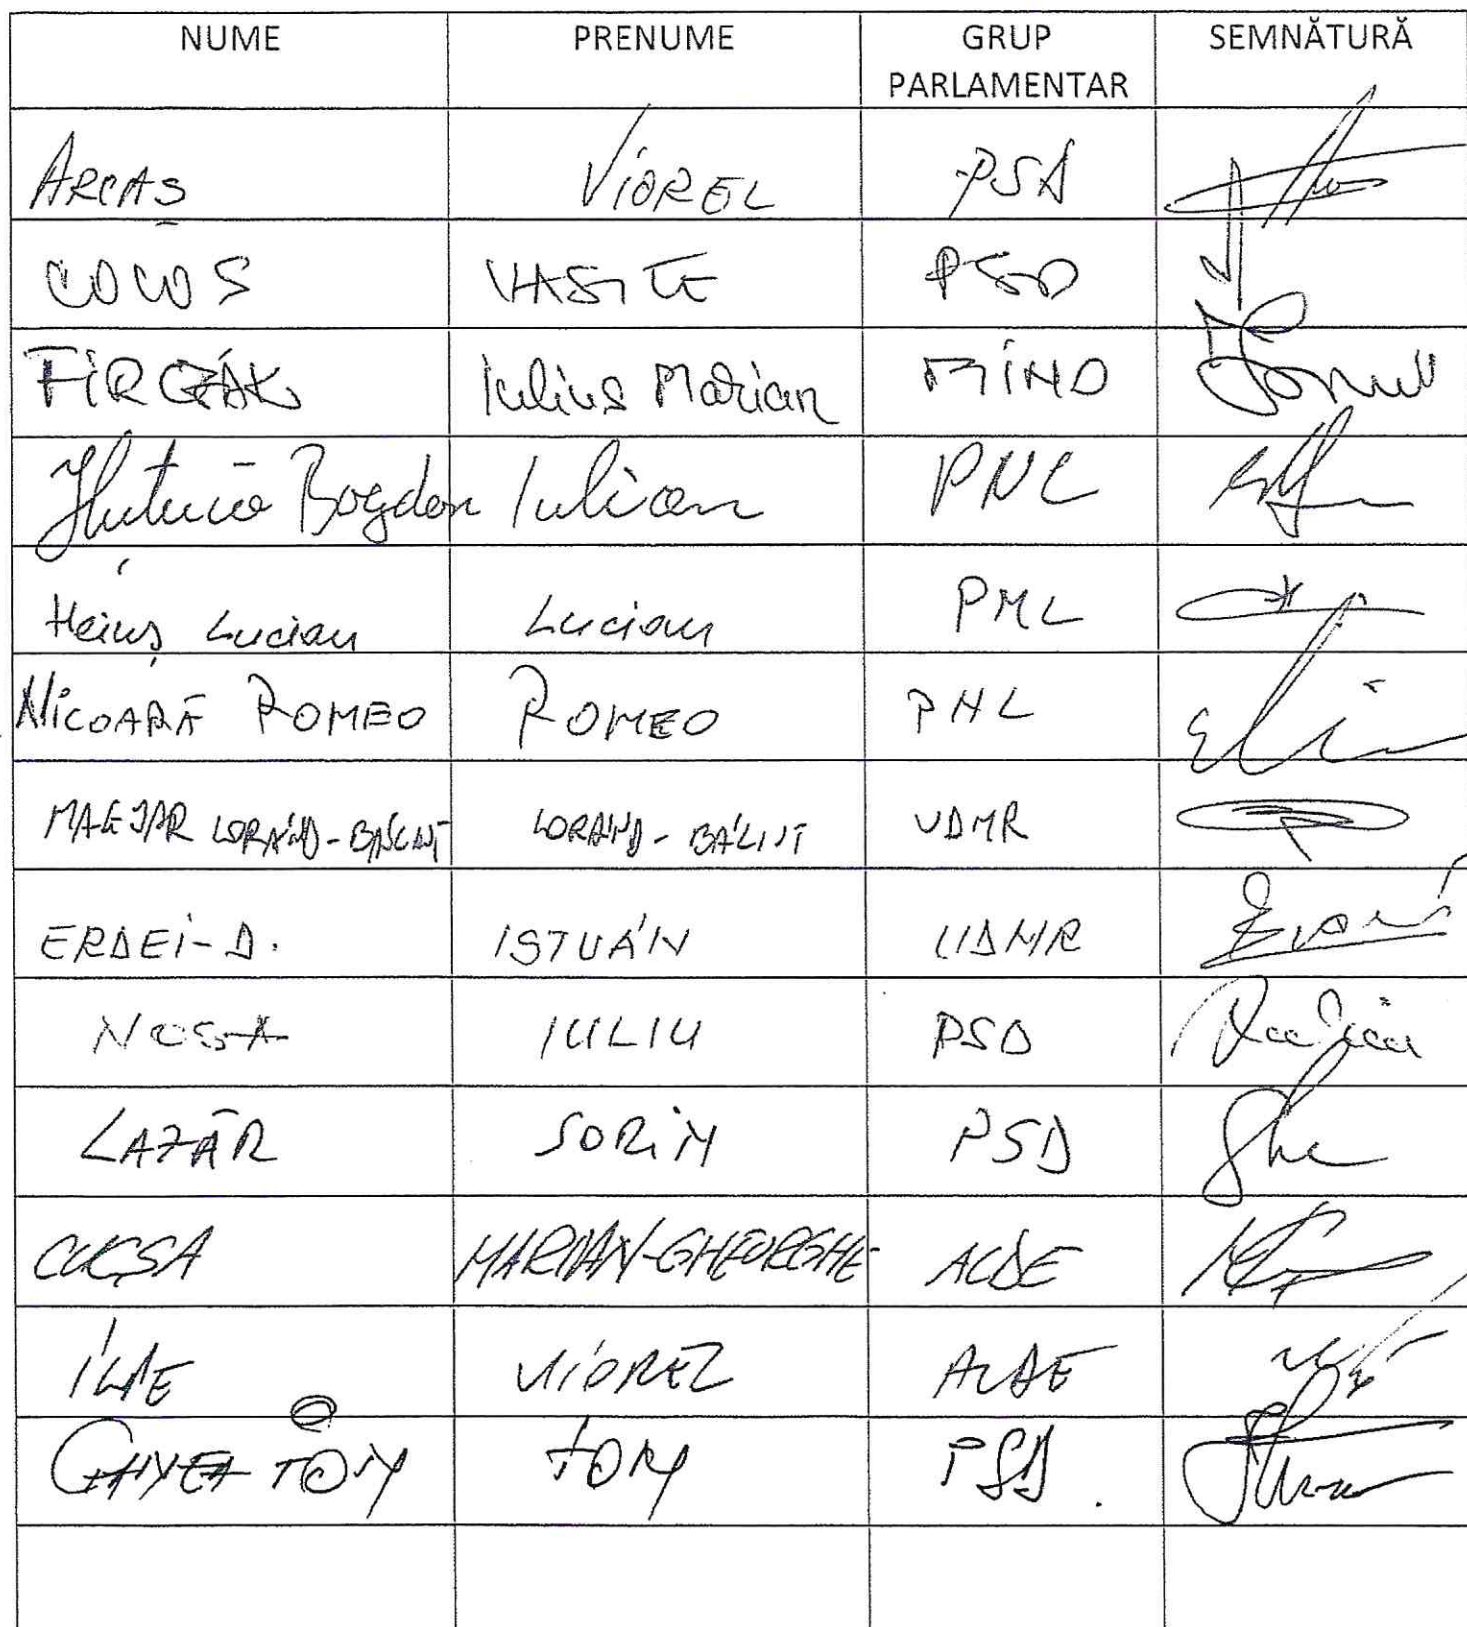 NUME PRENUME GRUP PARLAMENTAR SEMNĂTURĂ
ARCAȘ VIOREL PSD
COCOȘ VASILE PSD
FIRCZÁK Iulius Marian MINO
Huțucă Bogdan Iulian PNL
Heiuș Lucian Lucian PNL
NICOARĂ ROMEO ROMEO PNL
MAGYAR LORÁND-BÁLINT LORÁND-BÁLINT UDMR
ERDEI-D. ISTVÁN UDMR
NOSA IULIU PSD
LAZĂR SORIN PSD
CUCȘA MARIAN-GHEORGHE ALDE
ILIE VIOREL ALDE
TONY PSD.